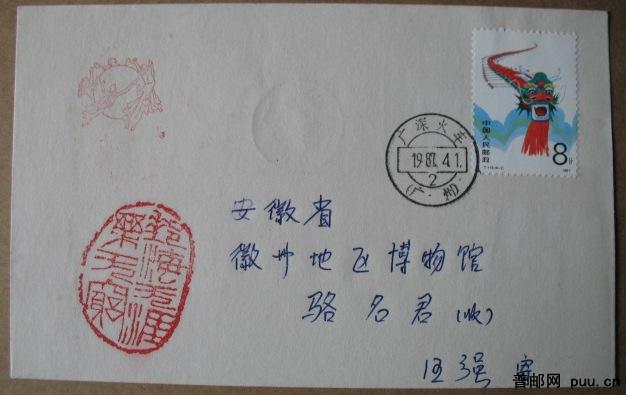 中国人民邮政
8分
广深火车
1987.4.1.
2
(广·州)
安徽省
徽州地区博物馆
骆名君(收)
汪强寄
普邮网 puu.cn